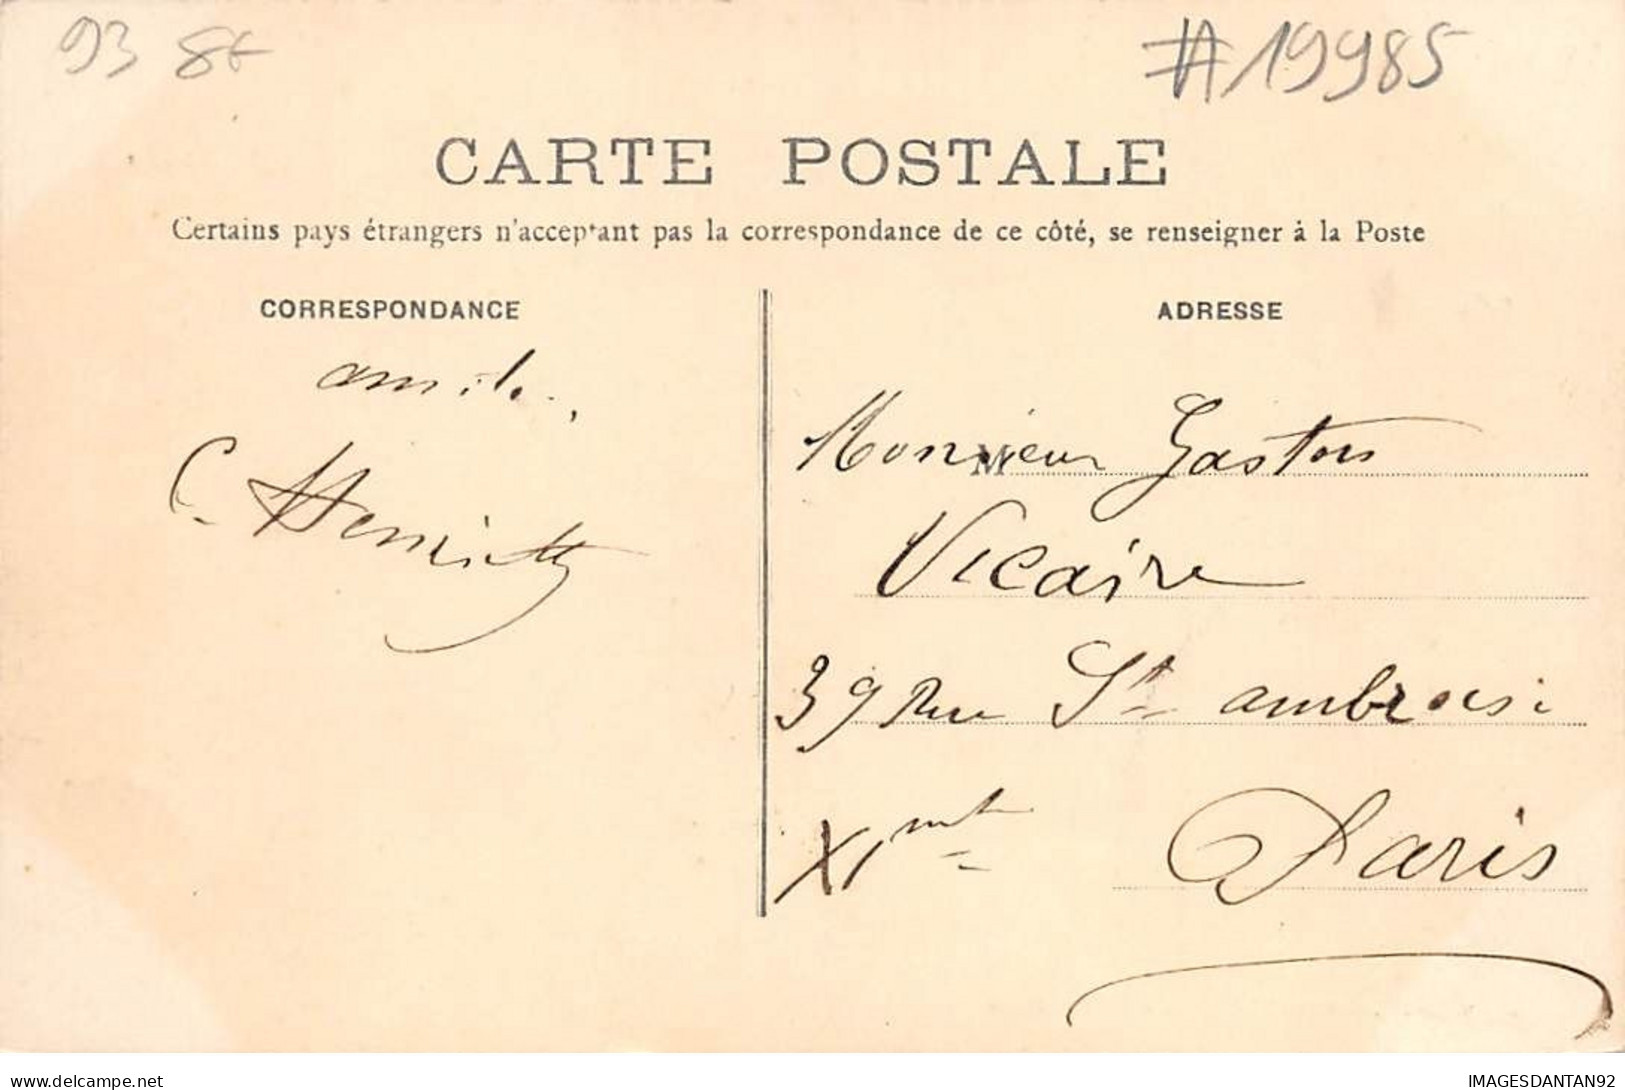 93 8€
#19985
CARTE POSTALE
Certains pays étrangers n'acceptant pas la correspondance de ce côté, se renseigner à la Poste
CORRESPONDANCE
ADRESSE
C.
Monsieur Gaston
M
Vicaire
39 Rue St ambroise
XI Paris
delcampe.net
IMAGESDANTAN92